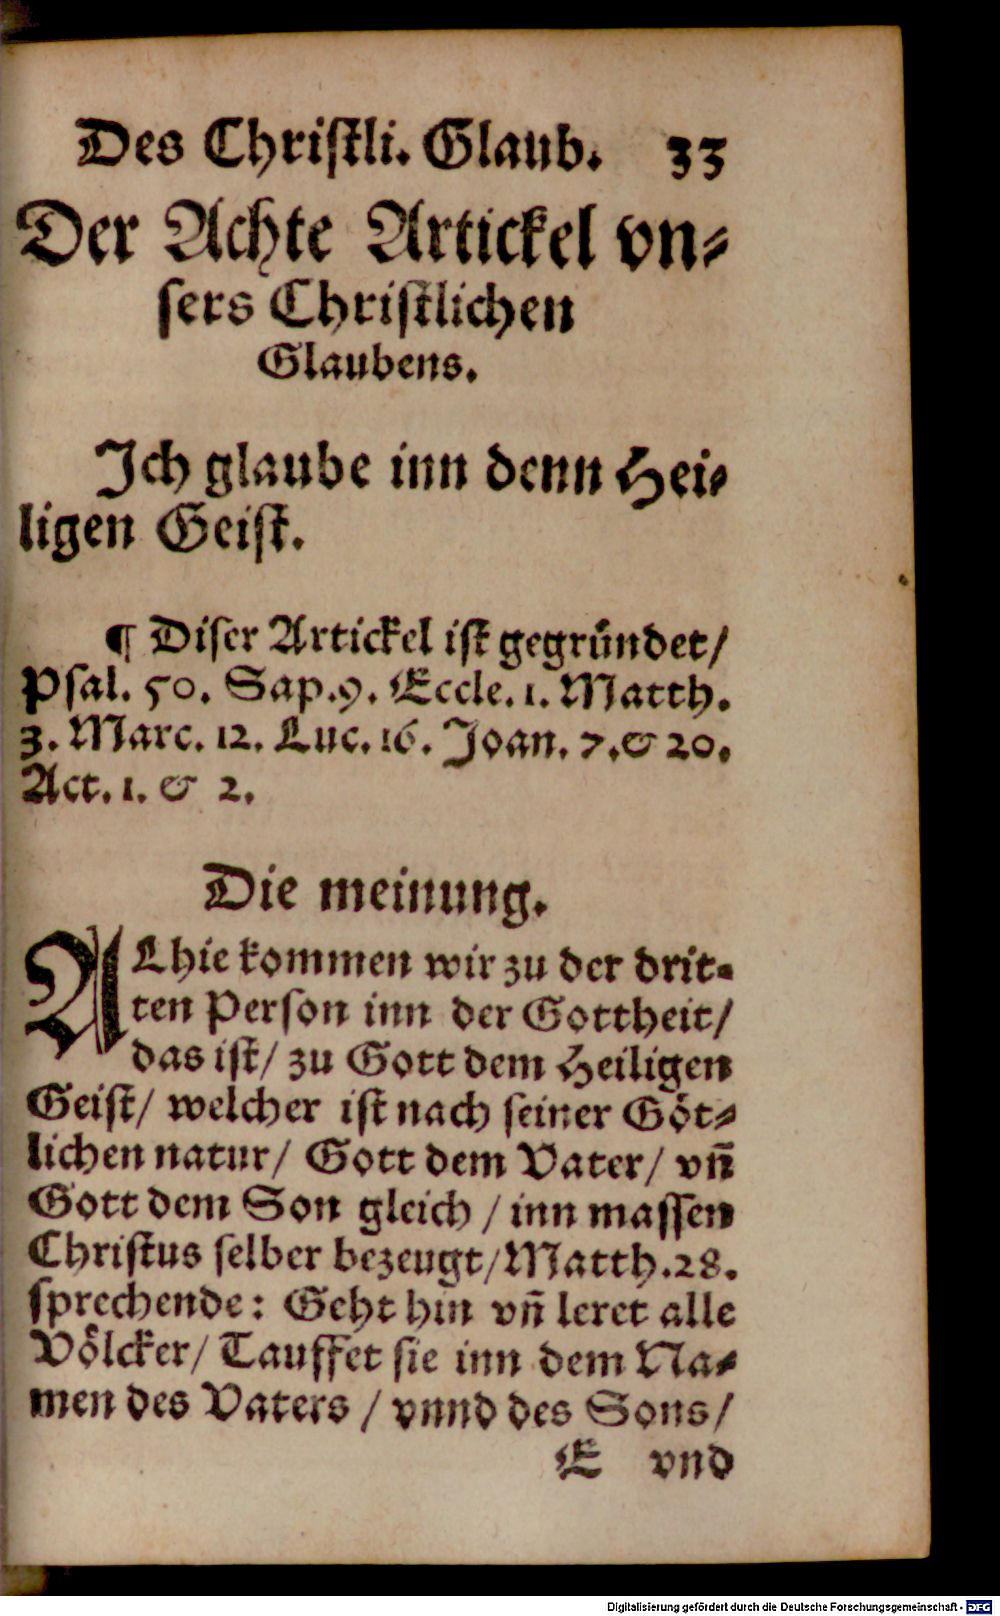 Des Chriſtli. Glaub. 33
Der Achte Artickel vn⸗
ſers Chriſtlichen
Glaubens.
Ich glaube inn denn Hei⸗
ligen Geiſt.
¶ Diſer Artickel iſt gegruͤndet/
Pſal. 50. Sap. 9. Eccle. 1. Matth.
3. Marc. 12. Luc. 16. Joan. 7. & 20.
Act. 1. & 2.
Die meinung.
ALhie kommen wir zu der drit⸗
ten Perſon inn der Gottheit/
das iſt/ zu Gott dem Heiligen
Geiſt/ welcher iſt nach ſeiner Goͤt⸗
lichen natur/ Gott dem Vater/ vñ
Gott dem Son gleich / inn maſſen
Chriſtus ſelber bezeugt/ Matth. 28.
ſprechende: Geht hin vñ leret alle
Voͤlcker/ Tauffet ſie inn dem Na⸗
men des Vaters / vnnd des Sons/
E vnd
Digitalisierung gefördert durch die Deutsche Forschungsgemeinschaft - DFG